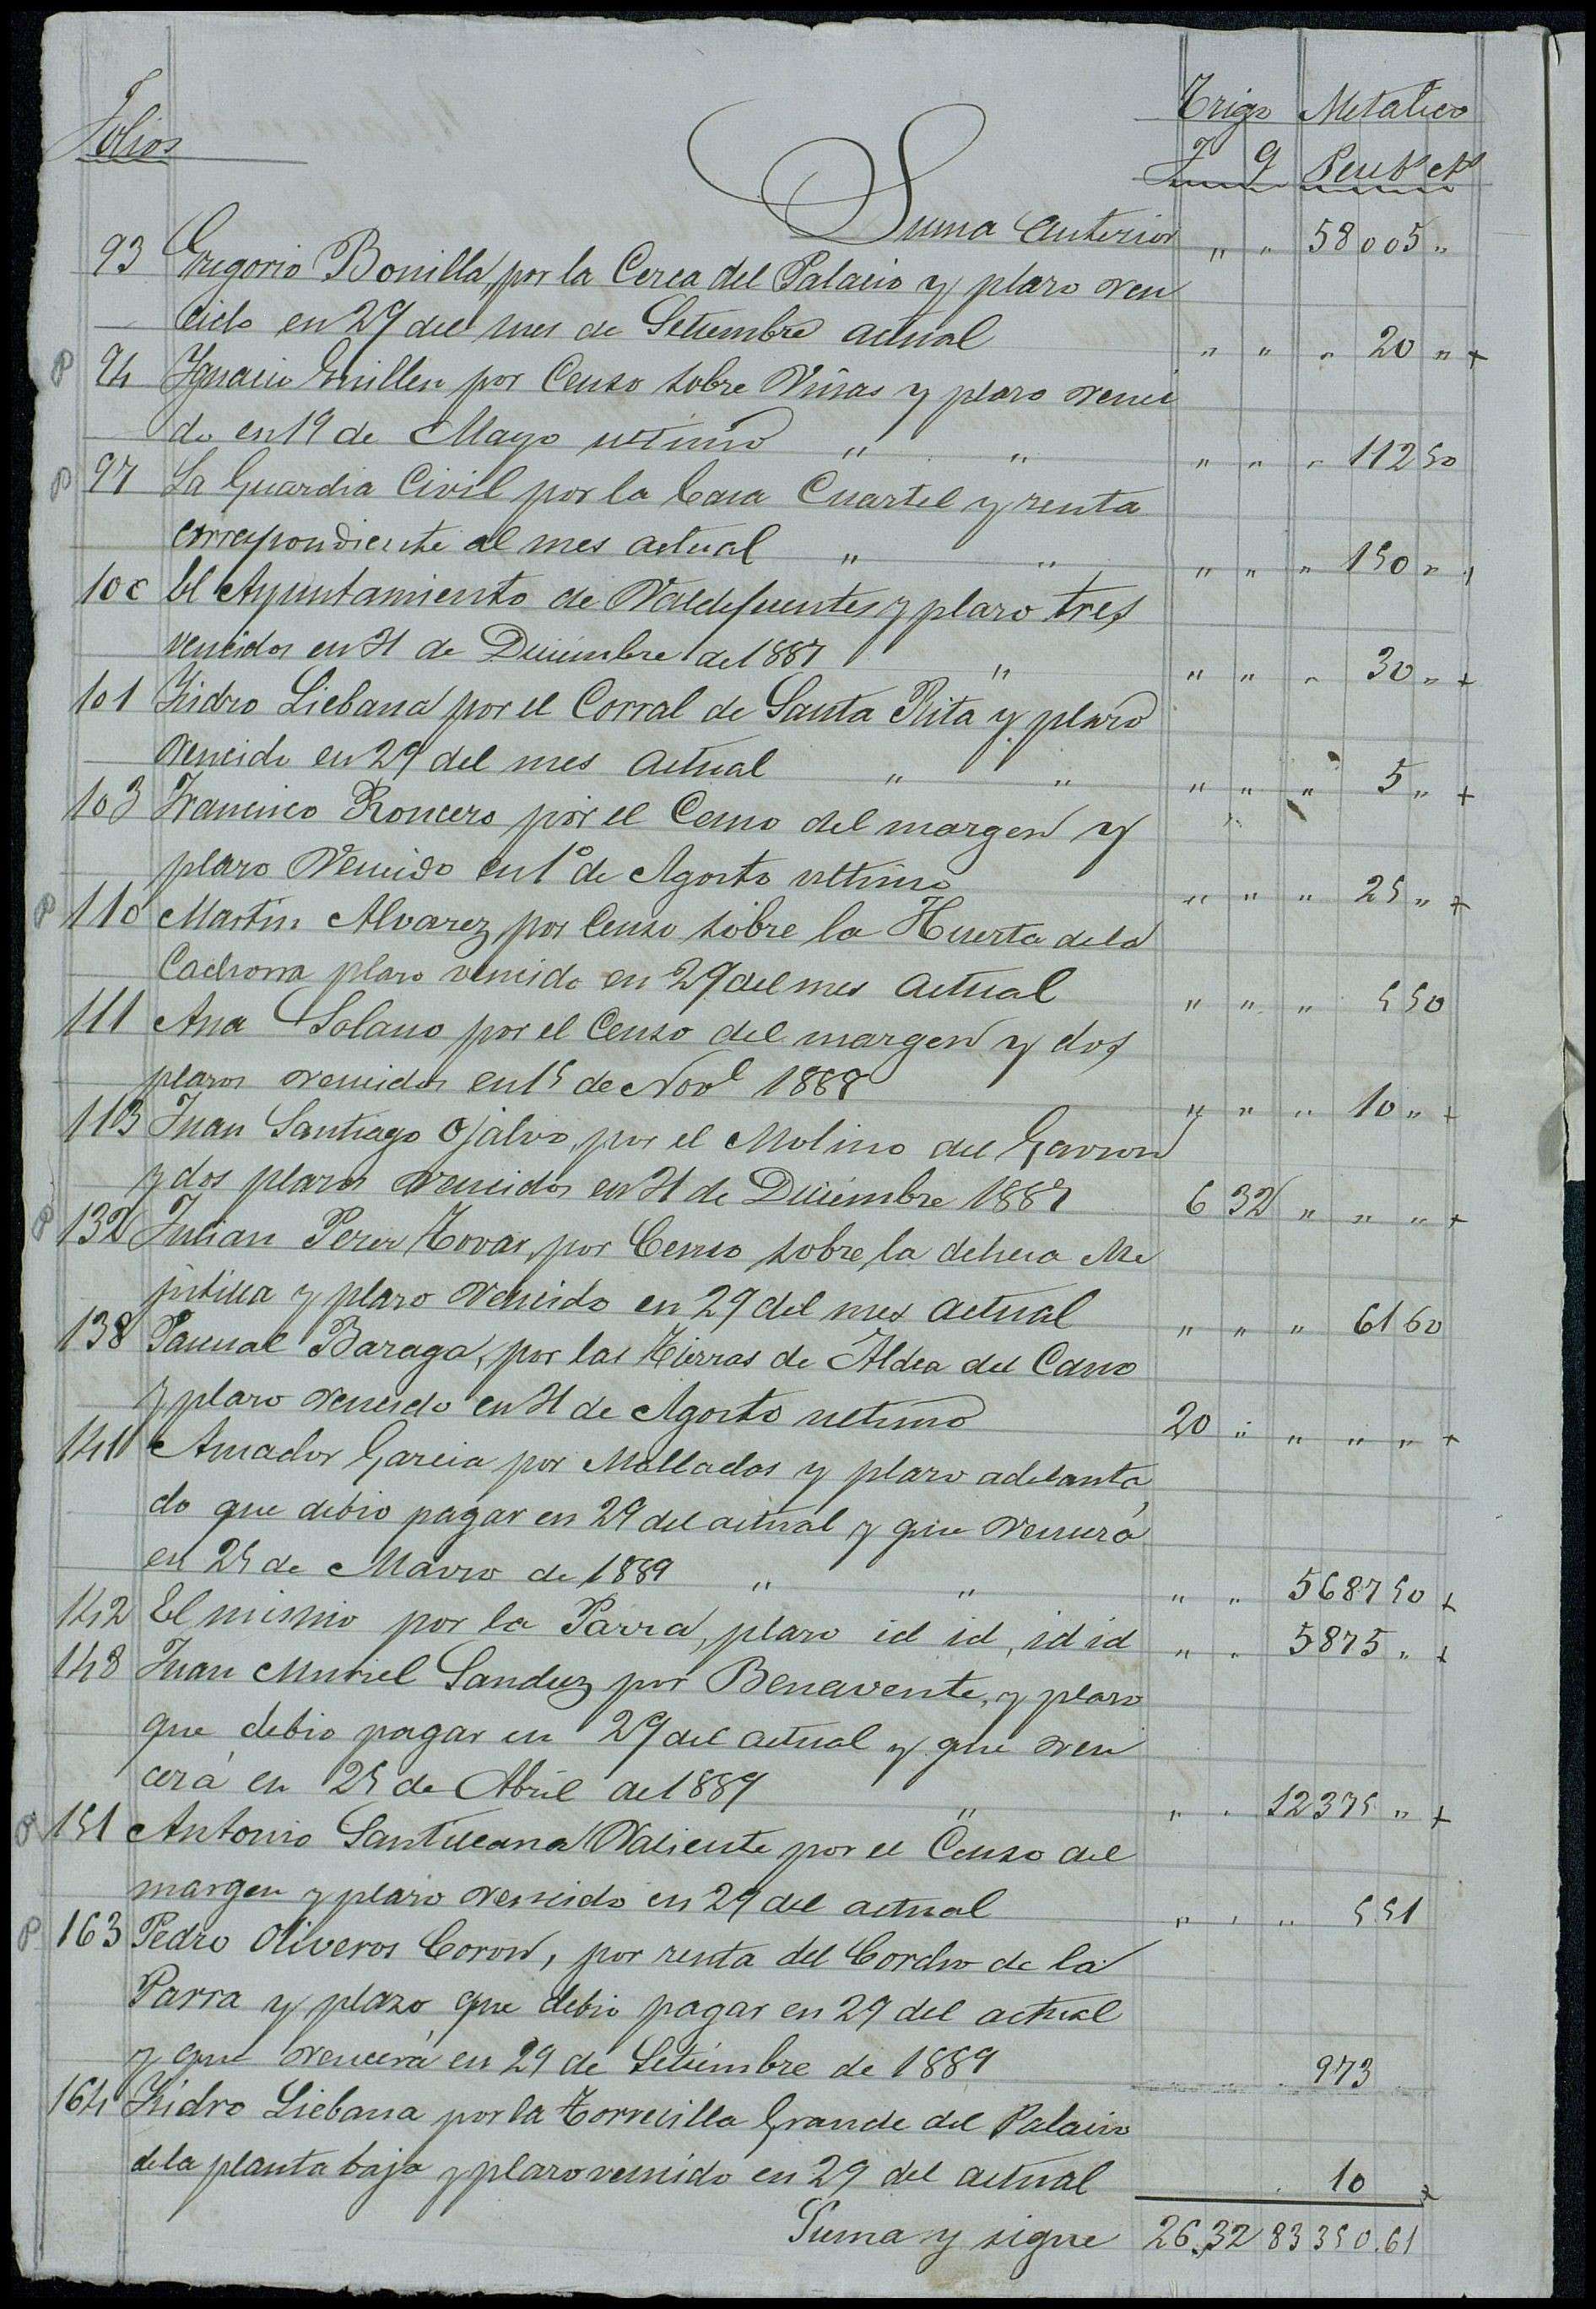 Trigo Metalico
Folios F g Pesets Cts
Suma anterior " " 58005 "
93 Gregorio Bonilla, por la Cerca del Palacio y plazo ven
cido en 29 del mes de Setiembre actual " " " 20 " +
P 94 Ignacio Guillen por Censo sobre Viñas y plazo venci
do en 19 de Mayo ultimo " " " " " 112 50
P 97 La Guardia Civil por la Casa Cuartel y renta
correspondiente al mes actual " " " " " 150 " +
100 El Ayuntamiento de Valdefuentes y plazo tres
vencidos en 31 de Diciembre de 1887 " " " " 30 " +
101 Isidro Liebana por el Corral de Santa Rita y plazo
vencido en 29 del mes actual " " " " " 5 " +
103 Francisco Roncero por el Censo del margen y
plazo Vencido en 1º de Agosto ultimo " " " 25 " +
P 110 Martin Alvarez por Censo sobre la Huerta de la
Cachorra plazo vencido en 29 del mes actual " " " 5 50
111 Ana Solano por el Censo del margen y dos
plazos vencidos en 15 de Novl 1888 " " " 10 " +
113 Juan Santiago Ojalvo, por el Molino del Garron
y dos plazos vencidos en 31 de Diciembre 1887 6 32 " " " +
P 132 Julian Perez Tovar, por Censo sobre la dehesa Me
jutilla y plazo vencido en 29 del mes actual " " " 61 60
138 Pascual Baraga, por las Tierras de Aldea del Cano
y plazo vencido en 31 de Agosto ultimo 20 " " " " +
141 Amador Garcia por Mallados y plazo adelanta
do que debio pagar en 29 del actual y que vencerá
en 25 de Marzo de 1889 " " " " 5687 50 +
142 El mismo por la Parra, plazo id id, id id " " 5875 " +
148 Juan Muriel Sanduz por Benavente, y plazo
que debio pagar en 29 del actual y que ven
cerá en 25 de Abril de 1889 " " " 12375 " +
P 151 Antonio Santillana Valiente por el Censo del
margen y plazo vencido en 29 del actual " " " 5 51
P 163 Pedro Oliveros Coron, por renta del Corcho de la
Parra y plazo que debio pagar en 29 del actual
y que vencerá en 29 de Setiembre de 1889 973
164 Isidro Liebana por la Torrecilla Grande del Palacio
de la planta baja y plazo vencido en 29 del actual 10 +
Suma y sigue 26,32 83350.61